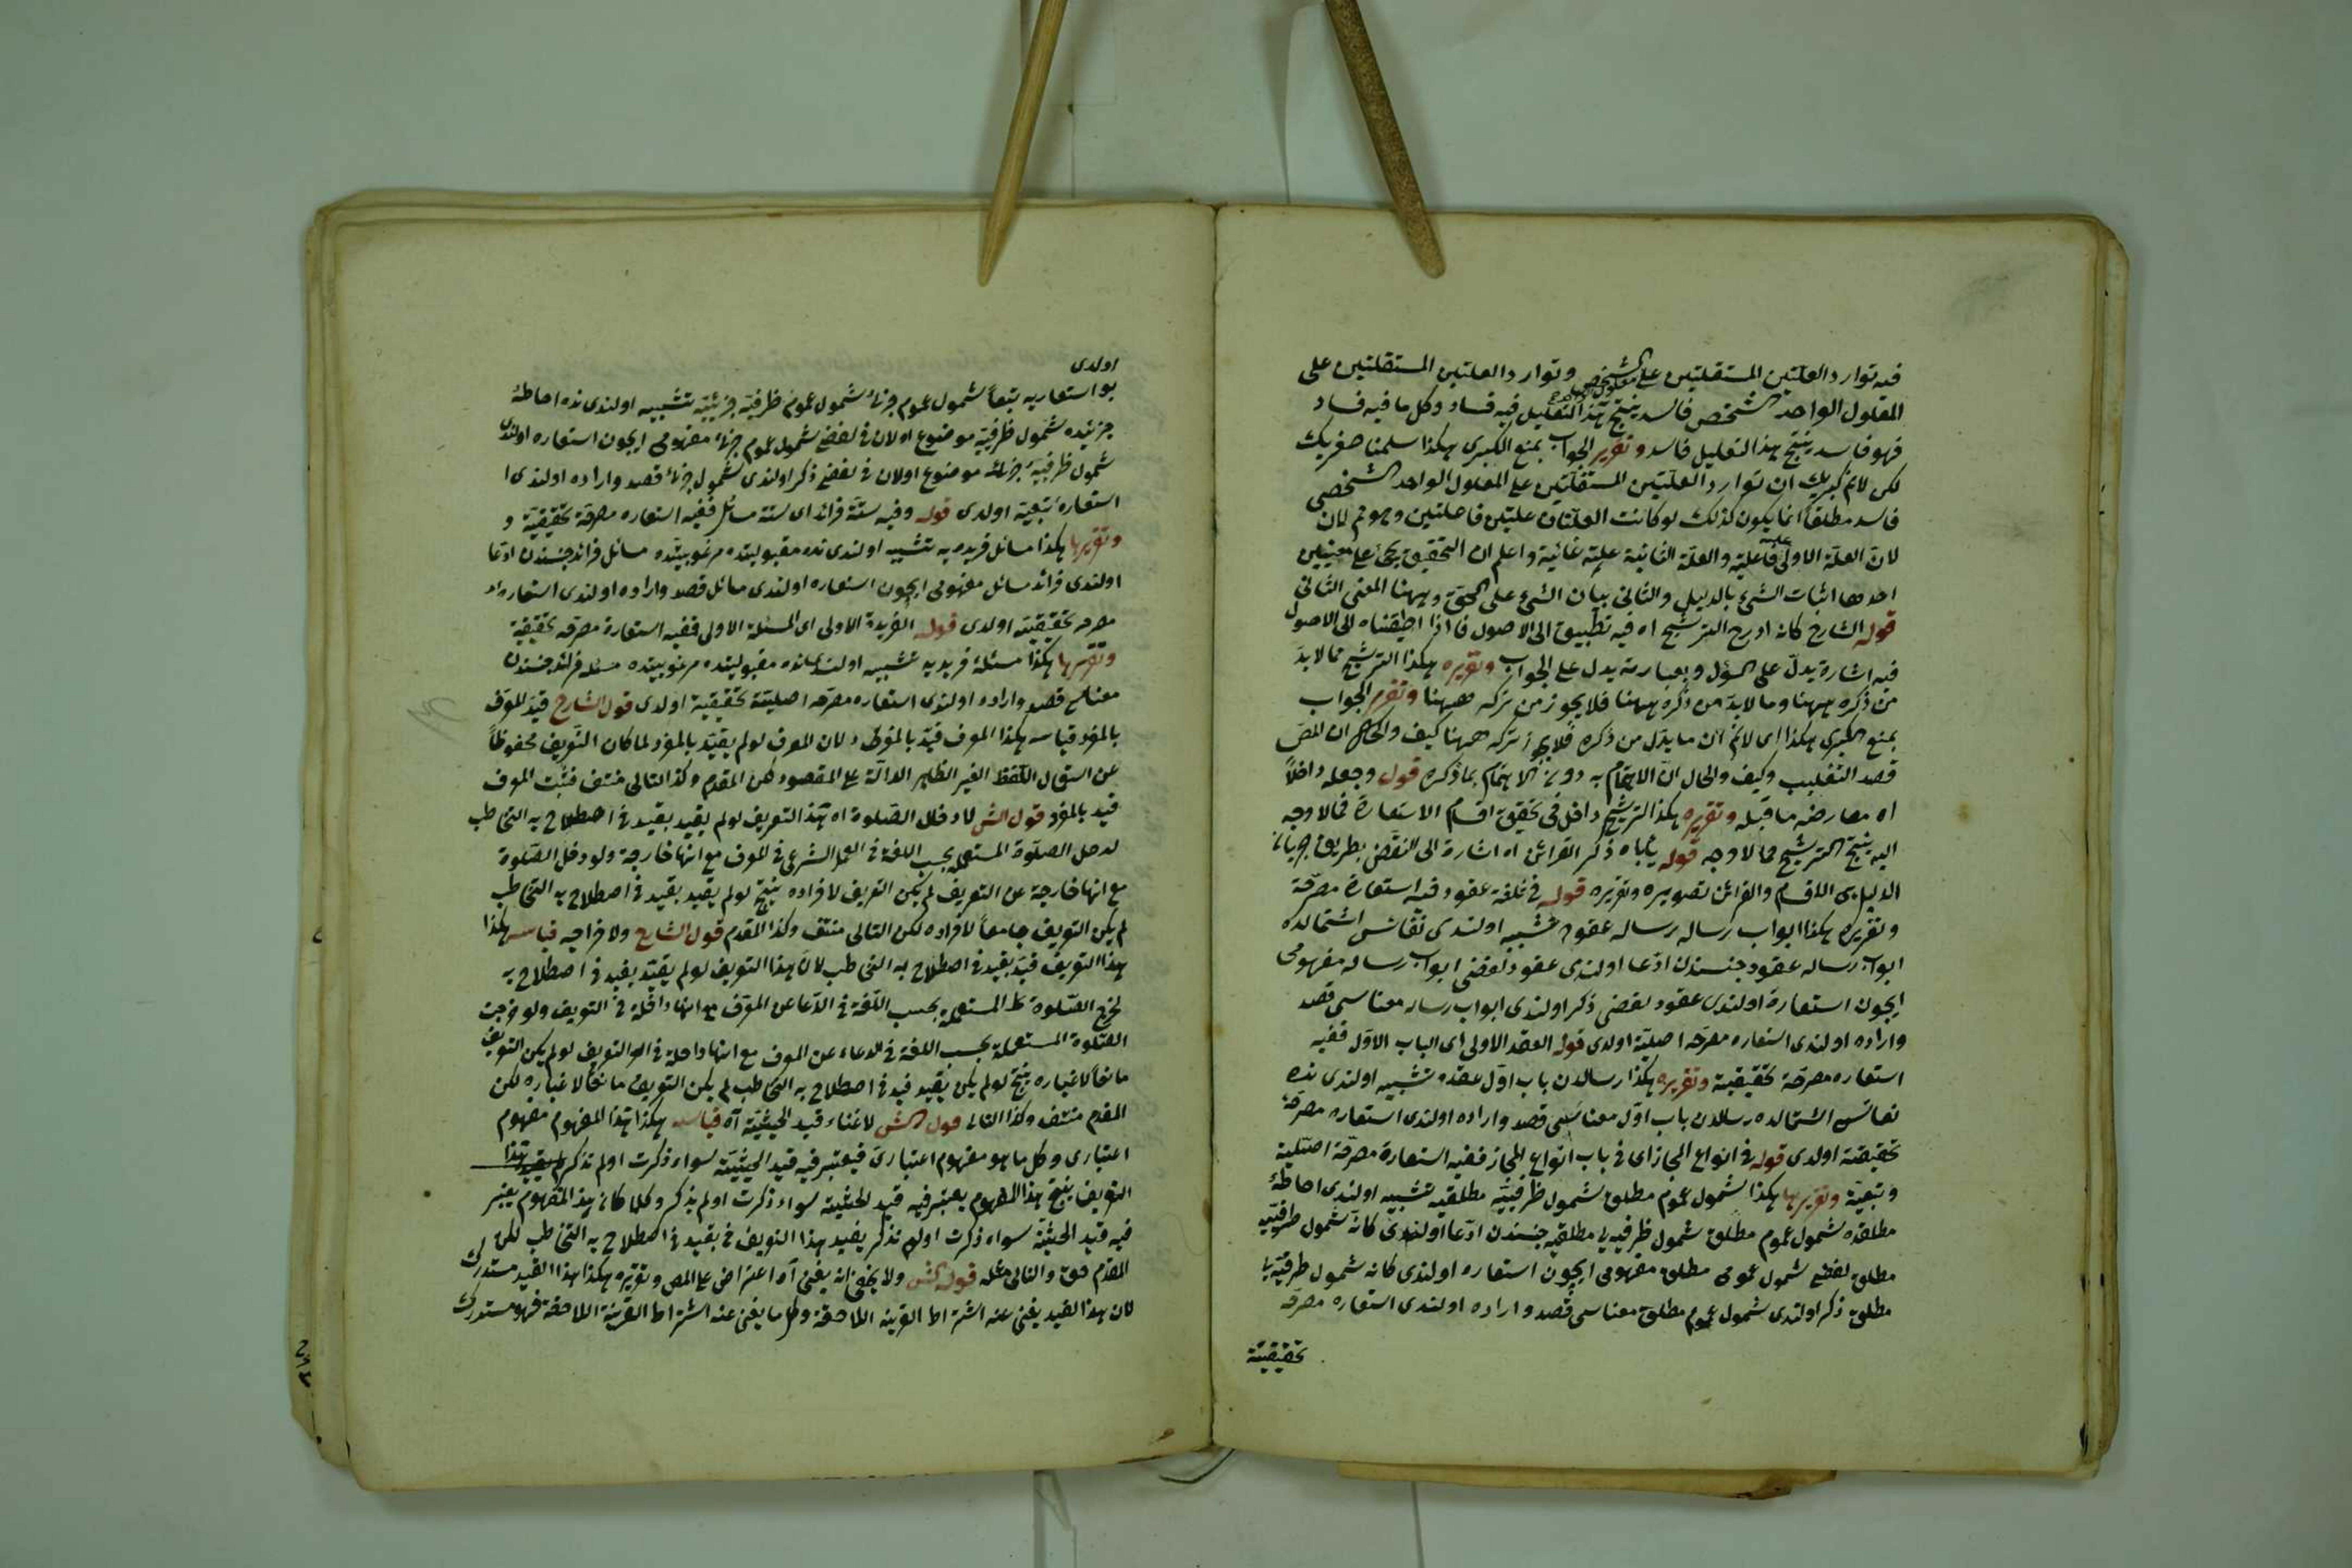 فيه توارد العلتين المستقلتين على الشخص وتوارد العلتين المستقلتين على
معلول
المعلول الواحد الشخص فاسد ينتج هذا التعليل فيه فساد وكل ما فيه فساد
فهو فاسد ينتج هذا التعليل فاسد وتقرير الجواب بمنع الكبرى هكذا سلمنا صغريك
لكن لانم كبريك ان توارد العلتين المستقلتين على المعلول الواحد الشخصى
فاسد مطلقا انما يكون كذلك لو كانت العلتان علتين فاعلتين وهو مم لان
لان العلة الاولى علة فاعلية والعلة الثانية علة غائية واعلم ان التحقيق يجئ على معنيين
احدهما اثبات الشئ بالدليل والثانى بيان الشئ على الحق وههنا المعنى الثانى
قوله الشارح كانه ادرج الترشيح اه فيه تطبيق الى الاصول فاذا اطبقناه الى الاصول
فيه اشارة يدل على السؤل وبعبارته يدل على الجواب وتقريره هكذا الترشيح مما لابد
من ذكره ههنا وما لابد من ذكره ههنا فلا يجوز من تركه ههنا وتقرير الجواب
بمنع الكبرى هكذا اى لانم ان ما بدل من ذكره فلا يجوز تركه ههنا كيف والحال ان المص
قصد التغليب وكيف والحال ان الاهتمام به دون الاهتمام بما ذكره قوله وجعله داخلا
اه معارضه ما قبله وتقريره هكذا الترشيح داخل فى تحقيق اقسام الاستعارة فمالا وجه
اليه ينتج الترشيح مما لا وجه قوله يأباه ذكر القرائن اه اشارة الى النقض بطريق جريان
الدليل اى الاقسام والقرائن تصويره وتقريره قوله فى ثلثة عقود فيه استعارة مصرحة
وتقريره هكذا ابواب رساله رساله عقوده تشبيه اولندى نفائس اشتمالده
ابواب رساله عقود جنسندن ادعا اولندى عقود لفضى ابواب رساله مفهومى
ايچون استعارة اولندى عقود لفضى ذكر اولندى ابواب رساله معناسى قصد
واراده اولندى استعاره مصرحه اصلية اولدى قوله العقد الاولى اى الباب الاول ففيه
استعاره مصرحة تحقيقية وتقريره هكذا رسالدن باب اول عقده تشبيه اولندى نده
نفائس اشتمالده رسالدن باب اول معناسى قصد واراده اولندى استعاره مصرحة
تحقيقية اولدى قوله فى انواع المجاز اى فى باب انواع المجاز ففيه استعارة مصرحة اصلية
وتبعية وتقريرها هكذا شمول عموم مطلق شمول ظرفية مطلقيه تشبيه اولندى احاطه
مطلقده شمول عموم مطلق شمول ظرفيه يا مطلقيه جنسندن ادعا اولندى كانه شمول ظرفيه
مطلق لفظى شمول عمومى مطلق مفهومى ايچون استعاره اولندى كانه شمول ظرفية يا
مطلق ذكر اولندى شمول عموم مطلق معناسى قصد واراده اولندى استعاره مصرحه
تحقيقية
اولدى
بو استعاريه تبعا شمول عموم جزئ شمول عموم ظرفية جزئيية تشبيه اولندى نده احاطه
جزئيده شمول ظرفية موضوع اولان فى لفضى شمول عموم جزئ مفهومى ايچون استعاره اولندى
شمول ظرفية جزئه موضوع اولان فى لفضى ذكر اولندى شمول جزئ قصد واراده اولندى ا
استعارۀ تبعية اولدى قوله وفيه ستة فرائد اى ستة مسائل ففيه استعاره مصرحة تحقيقية و
وتقريرها هكذا مسائل فريده يه تشبيه اولندى نده مقبوليتده مرغوبيتده مسائل فرائد جنسندن ادعا
اولندى فرائد مسائل مفهومى ايچون استعاره اولندى مسائل قصد واراده اولندى استعاره
مصرحه تحقيقية اولدى قوله الفريدة الاولى اى المسئلة الاولى ففيه استعارة مصرحه تحقيقية
وتقريرها هكذا مسئلۀ فريديه تشبيه اولندى نده مقبوليتده مرغوبيتده مسئله فرائد جنسندن
معناسى قصد واراده اولندى استعاره مصرحه اصلية تحقيقية اولدى قول الشارح قيد المعرف
بالمفرد قياسه هكذا المعرف قيد بالمفرد لان المعرف لو لم يقيد بالمفرد لما كان التعريف محفوظا
عن استعمال اللفظ الغير الظاهر الدالة على المقصود لكن المقدم وكذا التالى منتف فثبت المعرف
قيد بالمفرد قول الش لادخال الصلوة اه هذا التعريف لو لم يقيد بقيد فى اصطلاح به التخاطب
لدخل الصلوة المستعملة بحسب اللغة فى الشرعى فى المعرف مع انها خارجة ولو دخل الصلوة
مع انها خارجة عن التعريف لم يكن التعريف لافراده ينتج لو لم يقيد بقيد فى اصطلاح به التخاطب
لم يكن التعريف جامعا لافراده لكن التالى منتف وكذا المقدم قول الشارح ولاخراجه قياسه هكذا
هذا التعريف قيد بقيد فى اصطلاح به التخاطب لان هذا التعريف لو لم يقيد بقيد فى اصطلاح به
لخرج الصلوة المستعملة بحسب اللغة فى الدعا عن المعرف مع انها داخلة فى التعريف ولو خرجت
الصلوة المستعملة بحسب اللغة فى الدعاء عن المعرف مع انها داخلة فى التعريف لو لم يكن التعريف
مانعا لاغياره ينتج لو لم يكن يقيد قيد فى اصطلاح به التخاطب لم يكن التعريف مانعا لاغياره لكن
المقدم منتف وكذا التالى قول الش لاغناء قيد الحيثية اه قياسه هكذا هذا المفهوم مفهوم
اعتبارى وكل ما هو مفهوم اعتبارى فيعتبر فيه قيد الحيثية سواء ذكرت او لم تذكر هذا
التعريف ينتج هذا المفهوم يعتبر فيه قيد الحيثية سواء ذكرت او لم يذكر وكلما كان هذا المفهوم يعتبر
فيه قيد الحيثية سواء ذكرت او لم تذكر يفيد هذا التعريف فى بقيد فى اصطلاح به التخاطب لكن
المقدم حق والتالى مثله قول الش ولا يخفى انه يغنى اه اعتراض على المص وتقريره هكذا هذا القيد مستدرك
لان هذا القيد يغنى عنه اشتراط القرينة الملاحقة وكل ما يغنى عنه اشتراط القرينة اللاحقة فهو مستدرك